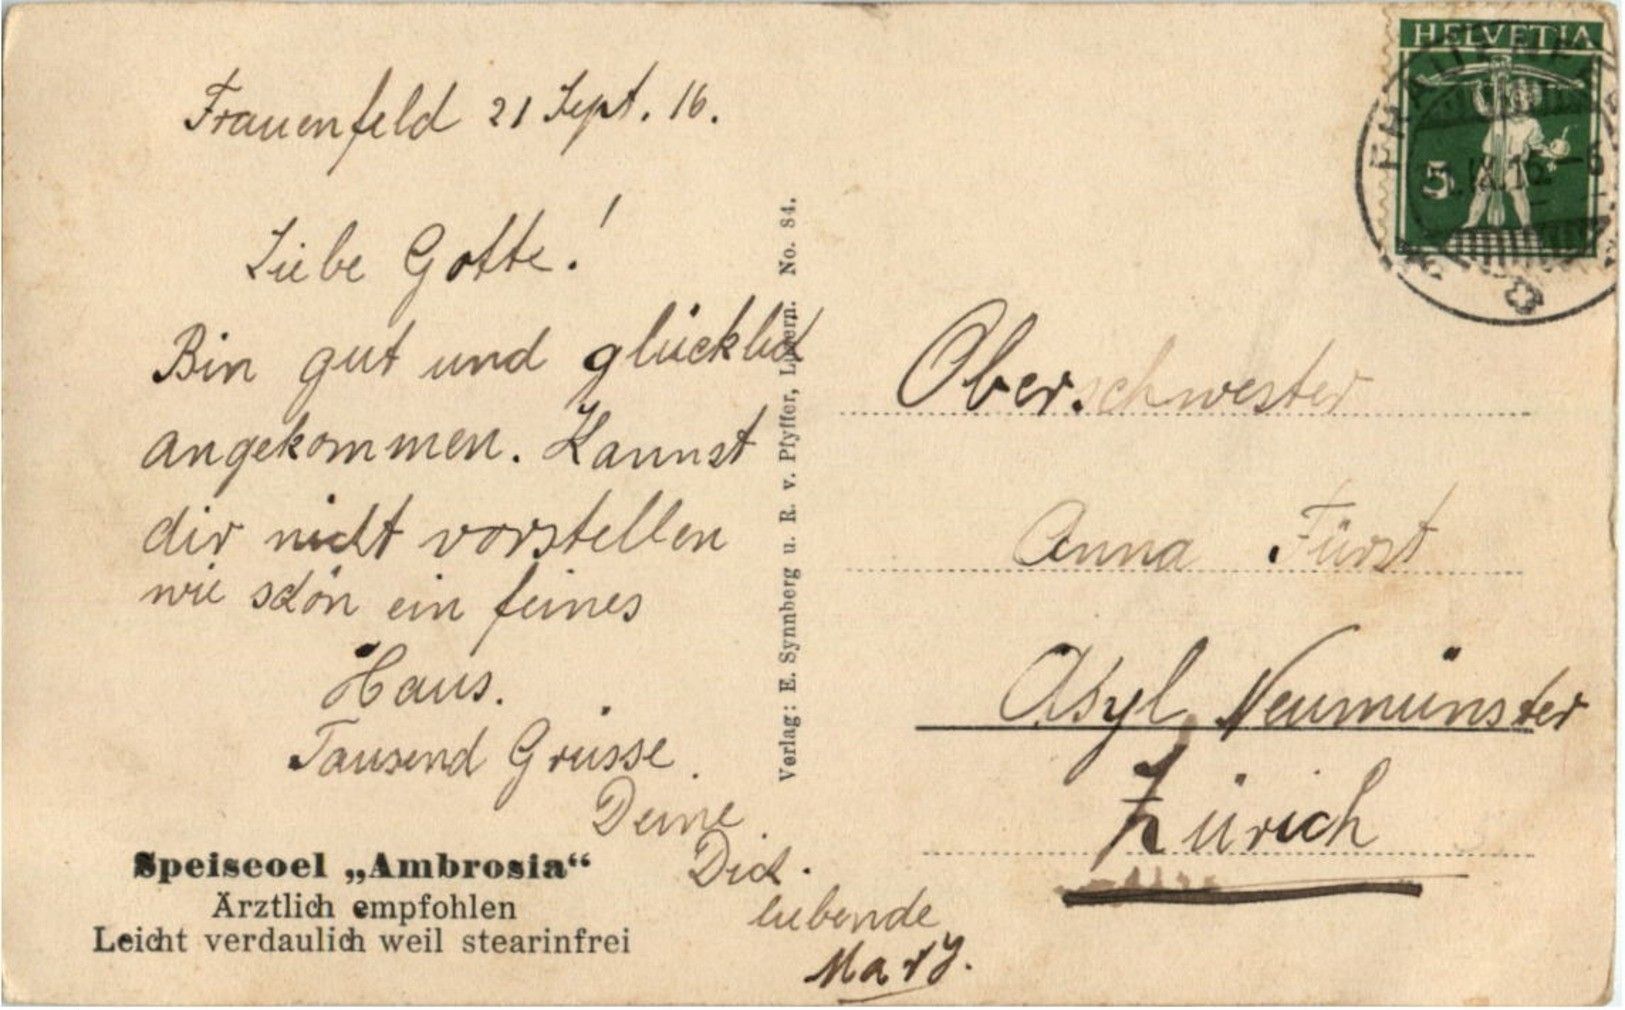 Frauenfeld 21 Sept. 16.
Liebe Gotte!
Bin gut und glücklich
angekommen. Kannst
dir nicht vorstellen
wie schön ein feines
Haus.
Tausend Grüsse.
Deine
Dich.
liebende
Mary.
Speiseoel „Ambrosia“
Ärztlich empfohlen
Leicht verdaulich weil stearinfrei
Verlag: E. Synnberg u. R. v. Pfyffer, Luzern. No. 84.
HELVETIA
5
Oberschwester
Anna Fürst
Asyl Neumünster
Zürich